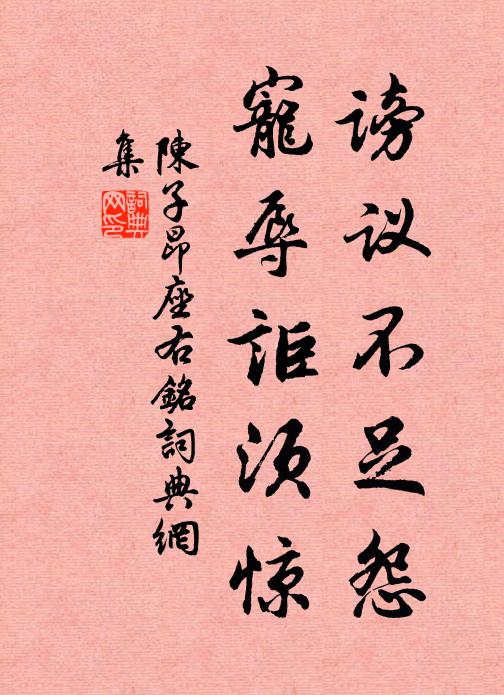 谤议不足怨
寵辱詎须惊
陳子昂座右銘詞典網
集
詞典网印